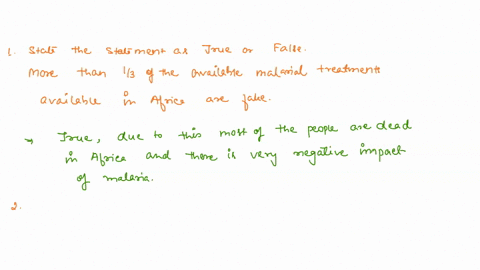 1. State the statement as True or False.
More than 1/3 of the available malarial treatments
available in Africa are fake.
→ True, due to this most of the people are dead
in Africa and there is very negative impact
of malaria.
2.